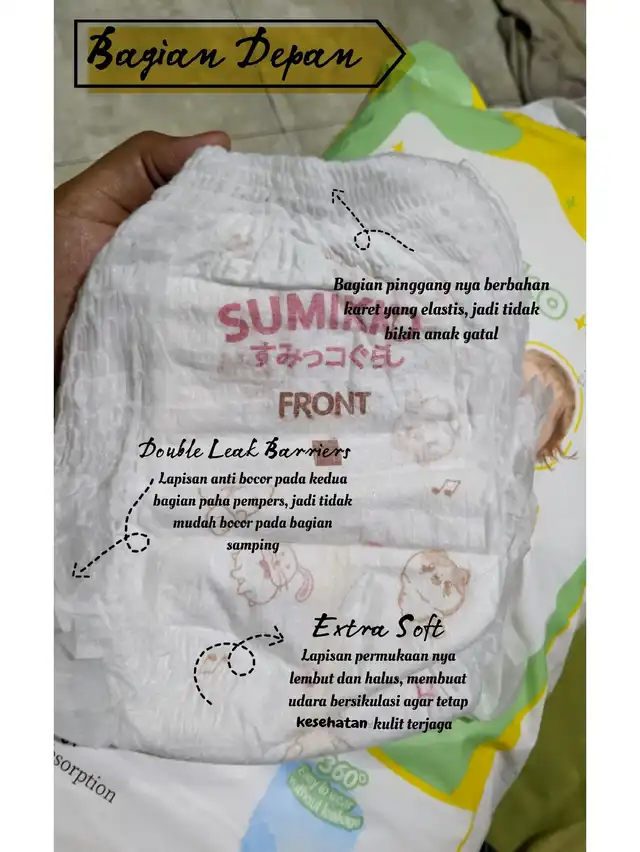 Bagian Depan
Bagian pinggang nya berbahan
karet yang elastis, jadi tidak
bikin anak gatal
すみっコぐらし
FRONT
Double Leak Barriers
Lapisan anti bocor pada kedua
bagian paha pempers, jadi tidak
mudah bocor pada bagian
samping
Extra Soft
Lapisan permukaan nya
lembut dan halus, membuat
udara bersikulasi agar tetap
kesehatan kulit terjaga
360°
without leakage